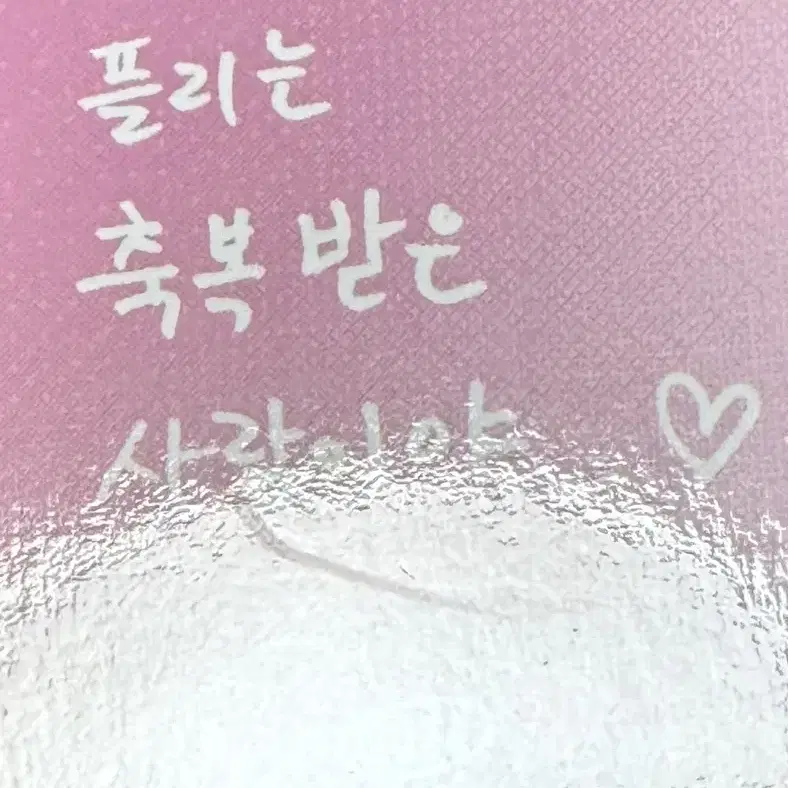 플리는
축복 받은
사람이야 ♡